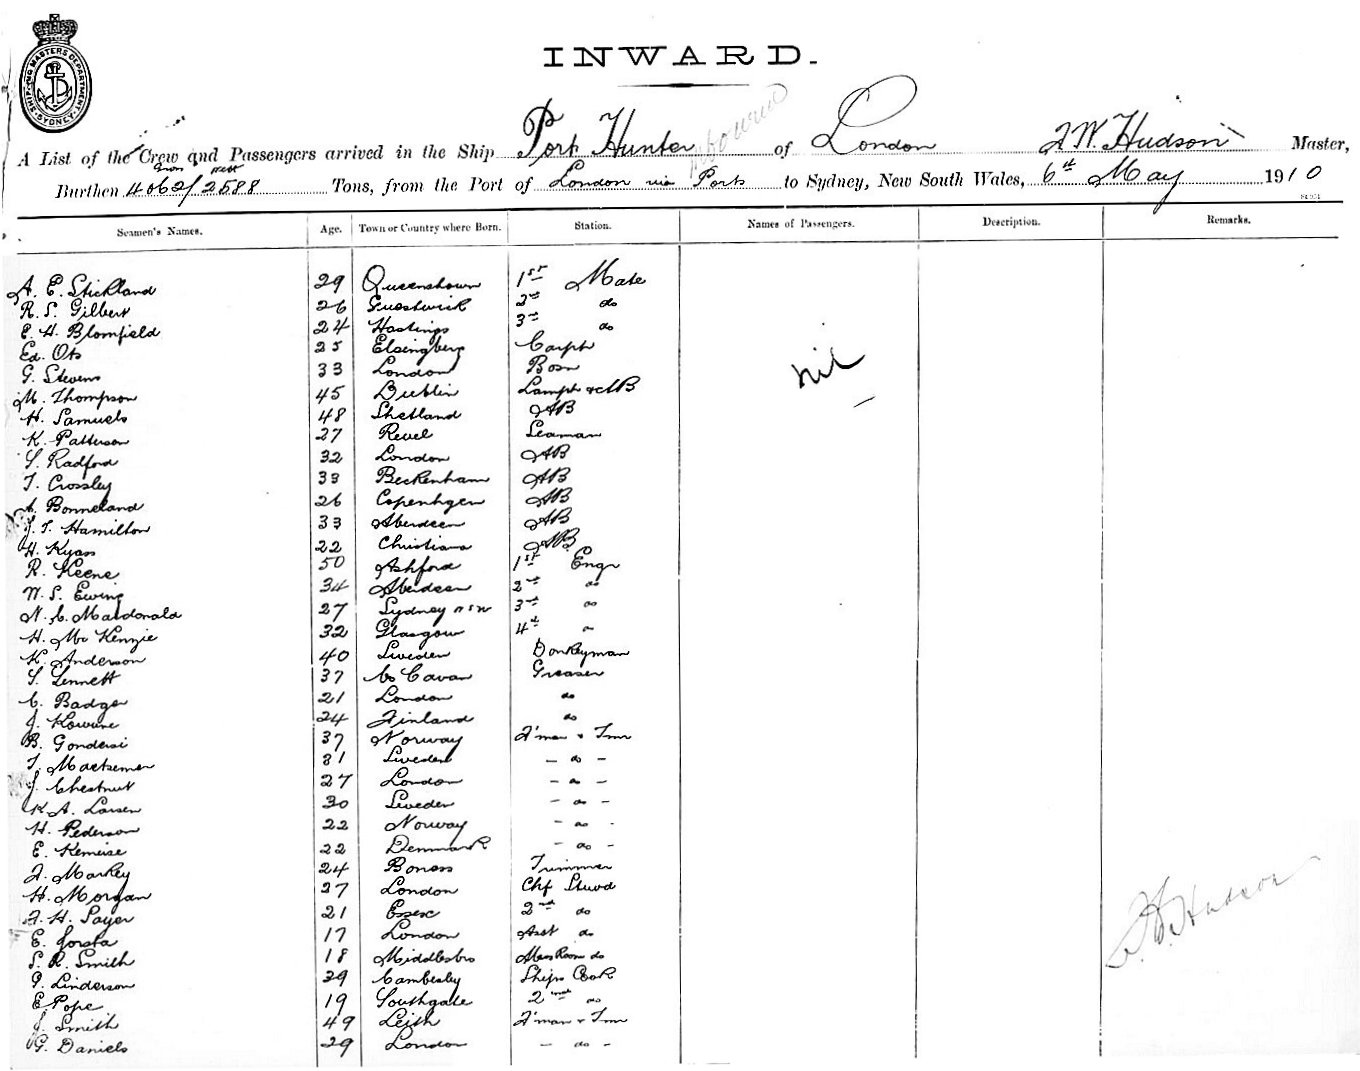 SHIPPING MASTERS DEPARTMENT SYDNEY
INWARD.
A List of the Crew and Passengers arrived in the Ship Port Hunter of London F W. Hudson Master,
Gross Nett
Burthen 4062/2588 Tons, from the Port of London via Ports to Sydney, New South Wales, 6th May 1910
Seamen's Names. Age. Town or Country where Born. Station. Names of Passengers. Description. Remarks.
A. E. Stickland 29 Queenstown 1st Mate
R. S. Gilbert 26 Guestwick 2nd do
E. H. Blomfield 24 Hastings 3rd do
Ed. Ots 25 Elsingberg Carptr
G. Stevens 33 London Bosn
nil
M. Thompson 45 Dublin Lamps & AB
H. Samuels 48 Shetland AB
K. Patterson 27 Revel Seaman
S. Radford 32 London AB
T. Crossley 33 Beckenham AB
A. Bonneland 26 Copenhgen AB
J. T. Hamilton 33 Aberdeen AB
H. Kyass 22 Christiana AB
R. Keene 50 Ashford 1st Engr
W. S. Ewing 34 Aberdeen 2nd do
N. C. Macdonald 27 Sydney NSW 3rd do
H. Mc Kenzie 32 Glasgow 4th do
K. Anderson 40 Sweden Donkeyman
S. Sennett 37 Co Cavan Greaser
C. Badger 21 London do
J. 24 Finland do
B. Gondersi 37 Norway F'man & Tmr
T. 31 Sweden - do -
J. Chestnut 27 London - do -
K A. Larsen 30 Sweden - do -
H. Pederson 22 Norway - do -
E. Kemeise 22 Denmark - do -
F. Markey 24 Boness Trimmer
H. Morgan 27 London Chf Stewd
F. H. Sayer 21 Essex 2nd do
E. 17 London Asst do
S. R. Smith 18 Middlesbro Mess Room do
F. W. Hudson
G. Linderson 29 Camberley Ships Cook
E Pope 19 Southgate 2nd do
J. Smith 49 Leith F'man & Tmr
G. Daniels 29 London - do -